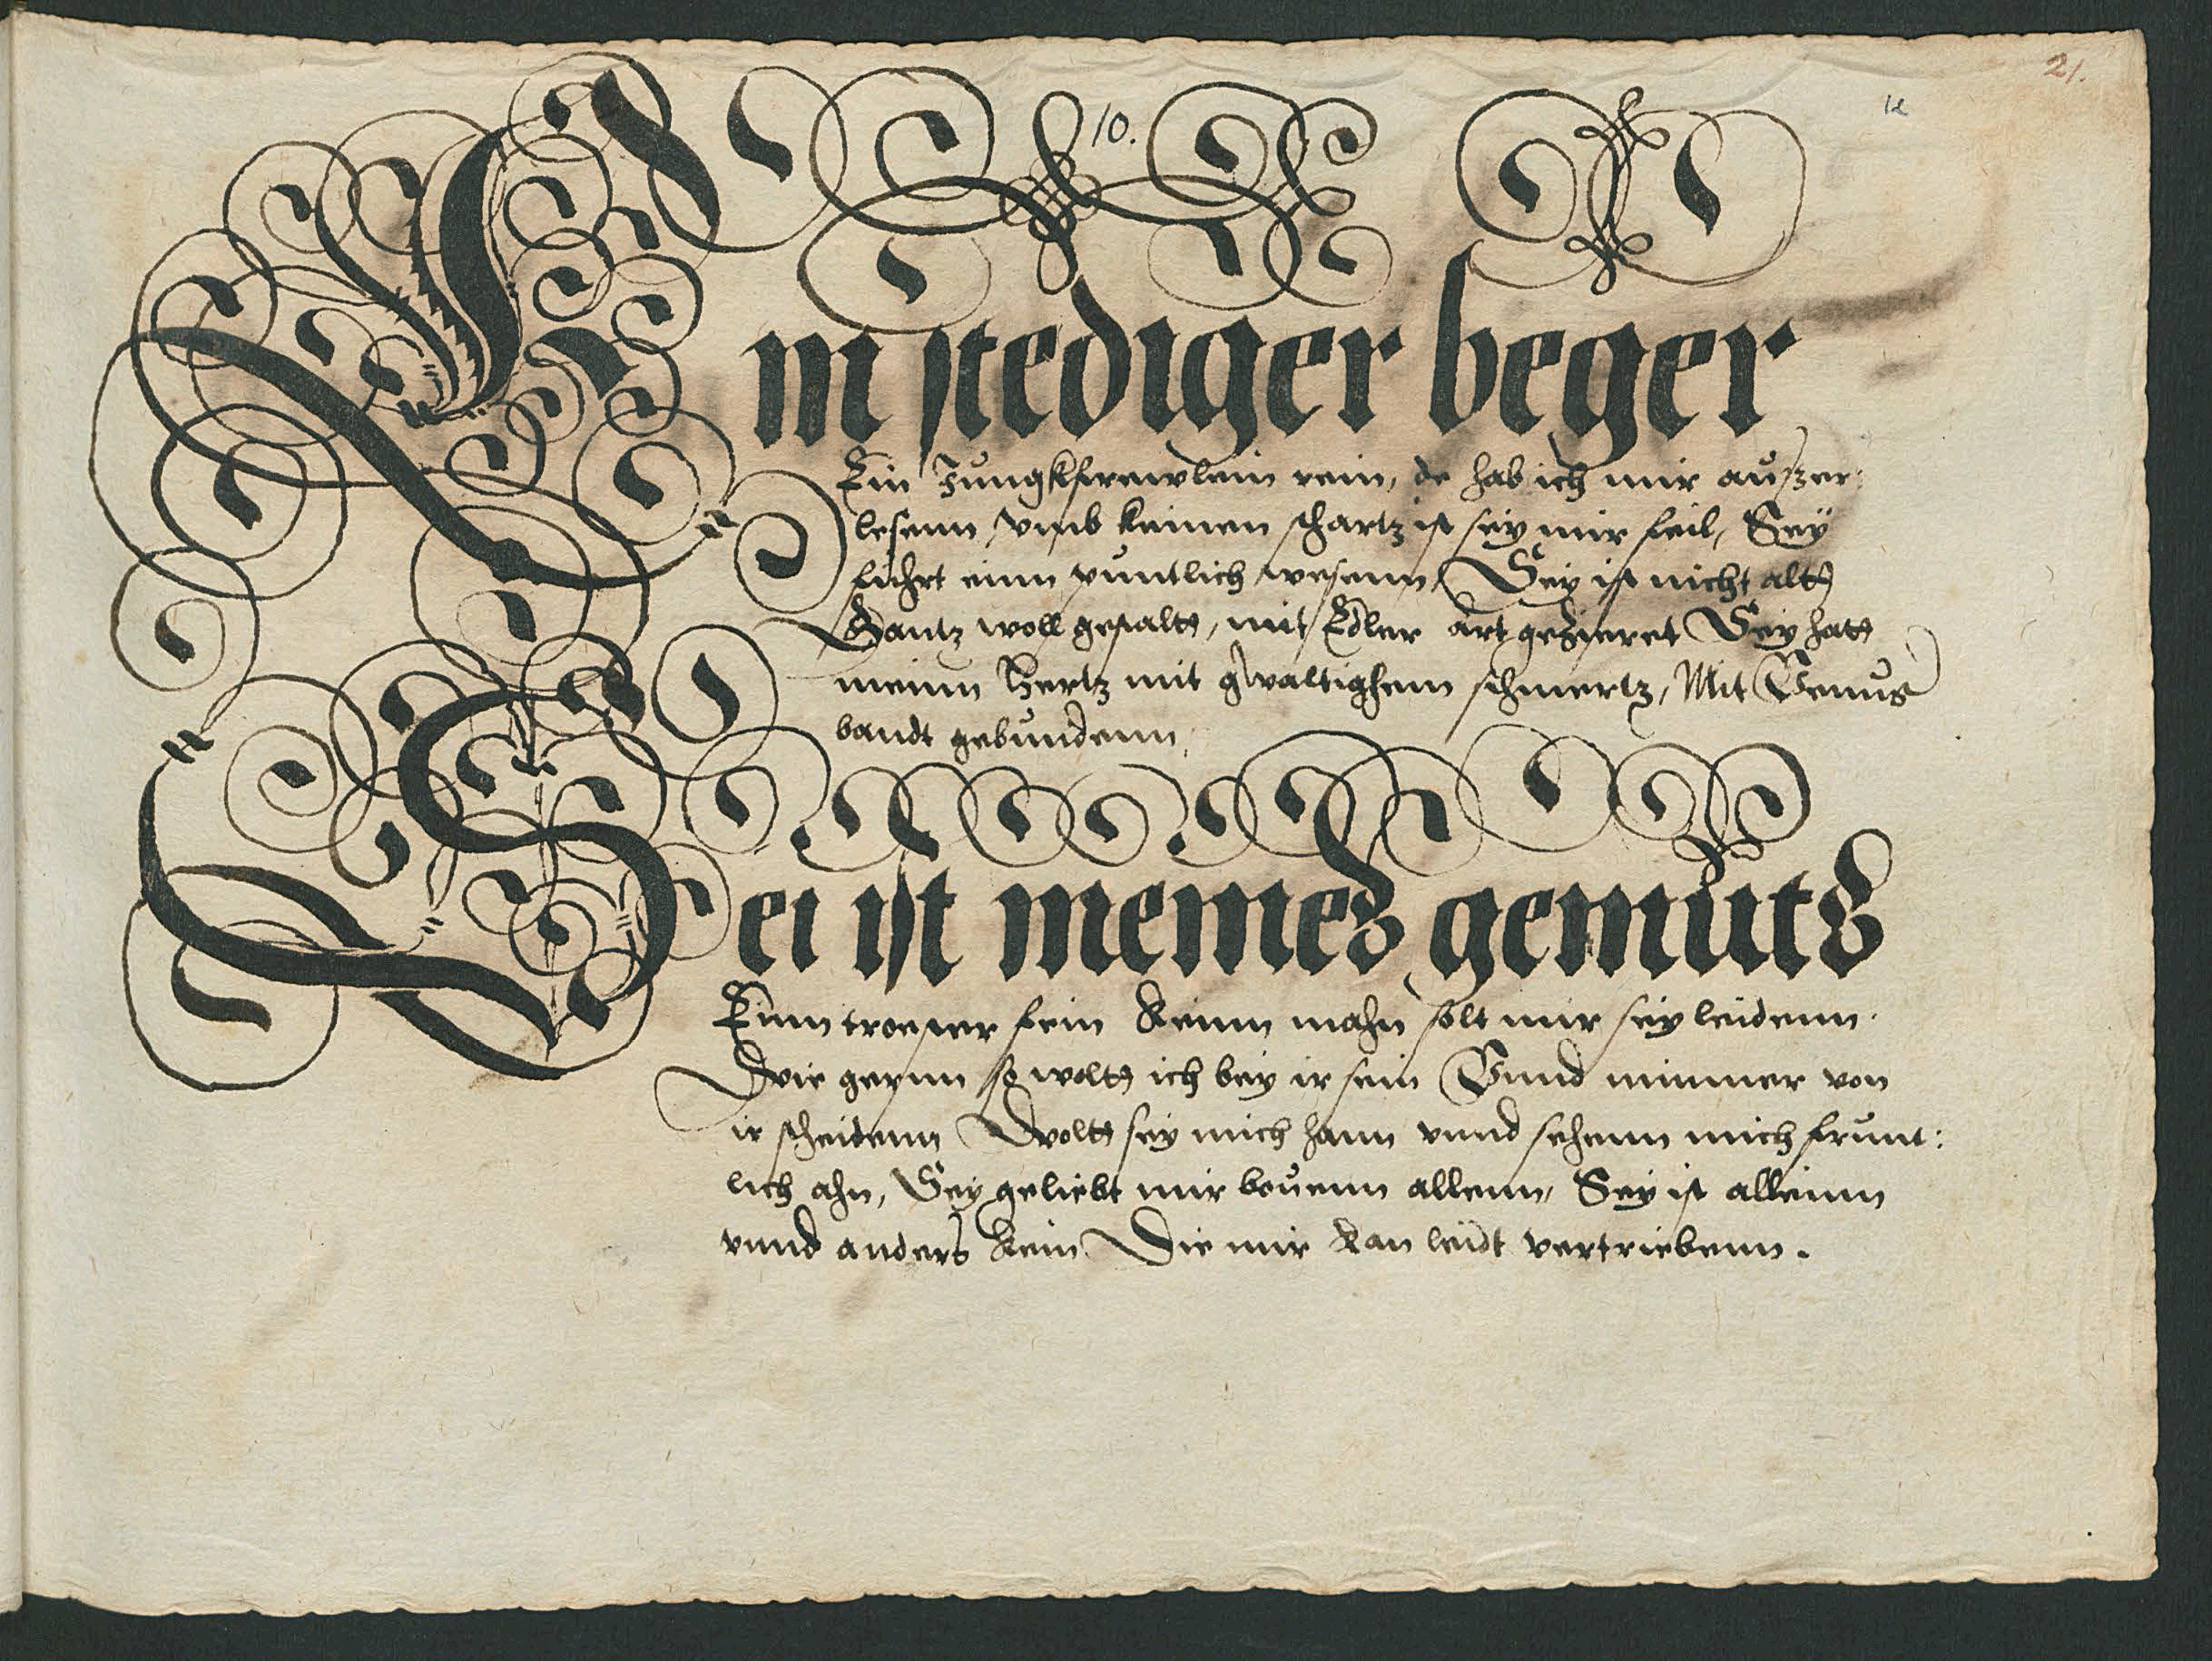 21.
10.
12
Ein stediger beger
Ein Jungkfrewlein rein, de hab ich mir außer:
lesenn, vmb keinen schartz ist sey mir feil, Sey
fuhrt einn puntlich wesenn, Sey ist nicht altt
Gantz woll gestaltt, mit Edler art gezieret Sey hatt
meinn Hertz mit gwaltighem schmertz, Mit Venus
bandt gebundenn,
Sei ist meines gemuts
Einn troester fein Keinn mahn solt mir sey leidenn.
Wie gernn so woltt ich bey ir sein Vnnd nimmer von
ir scheidenn Woltt sey mich hann vnnd sehenn mich frunt:
lich ahn, Sey geliebt mir bouenn allenn, Sey ist alleinn
vnnd anders kein Die mir kan leidt vertriebenn.